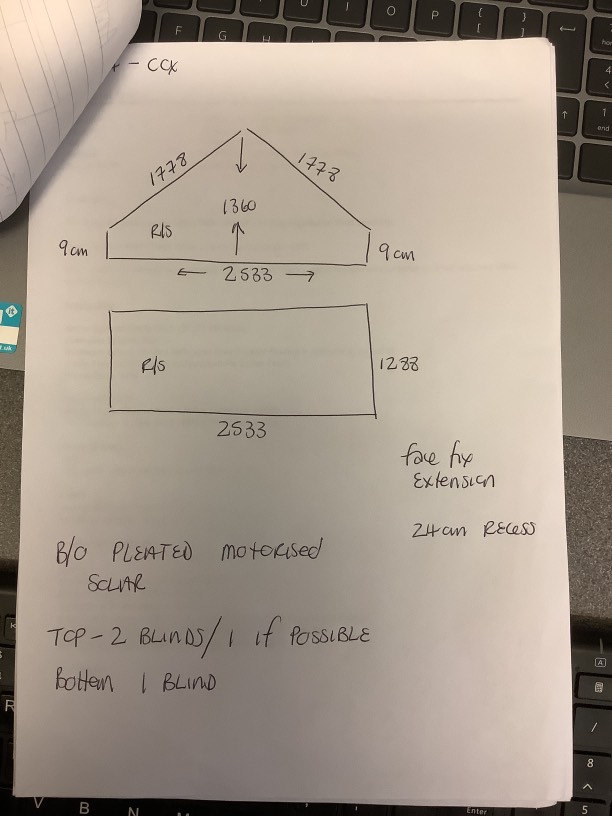 - COX
1778
1778
1360
R/S
9cm
9cm
← 2533 →
R/S
1288
2533
face fix
Extension
24cm Recess
B/O PLEATED motorised
SOLAR
TOP - 2 BLINDS / 1 if POSSIBLE
Bottom 1 BLIND